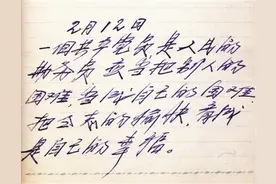 2月12日
一个共产党员是人民的
勤务员，应当把别人的
困难当成自己的困难，
把同志的愉快看成
是自己的幸福。